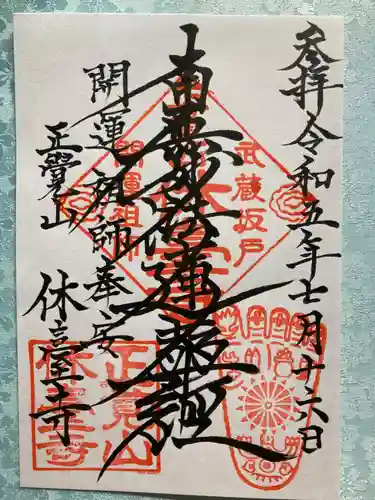 参拝令和五年七月十六日
南無妙法蓮華経
開運祖師奉安
正覺山
休臺寺
武蔵坂戸
開運祖師
正覚山
休臺寺